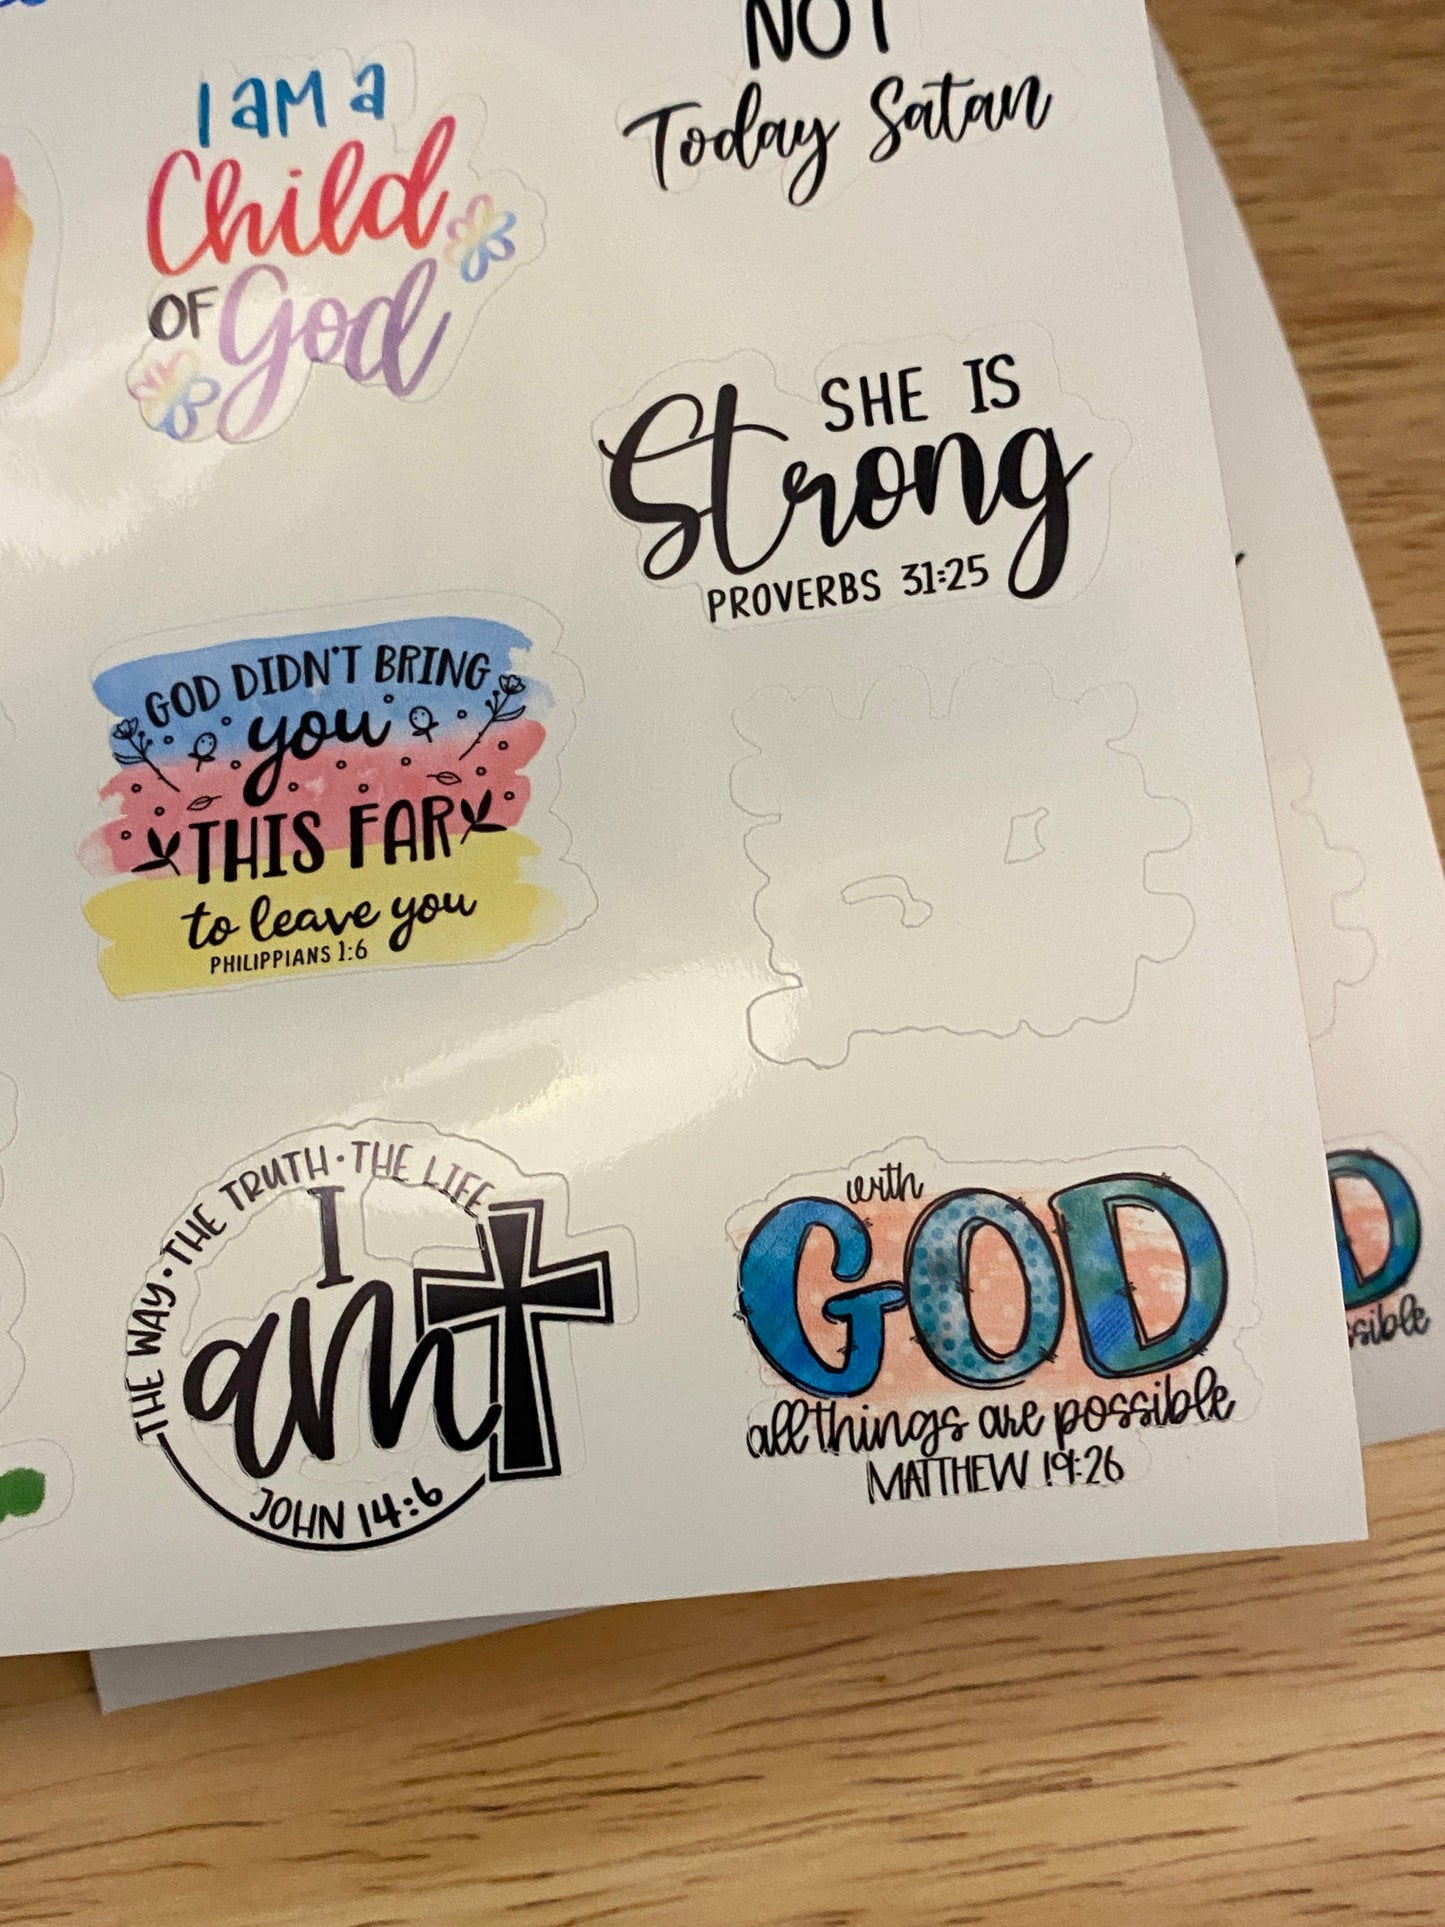 I AM a
Child
OF God
NOT
Today Satan
SHE IS
Strong
PROVERBS 31:25
GOD DIDN'T BRING
you
THIS FAR
to leave you
PHILIPPIANS 1:6
THE WAY • THE TRUTH • THE LIFE
I
am
JOHN 14:6
with
GOD
all things are possible
MATTHEW 19:26
D
ssible